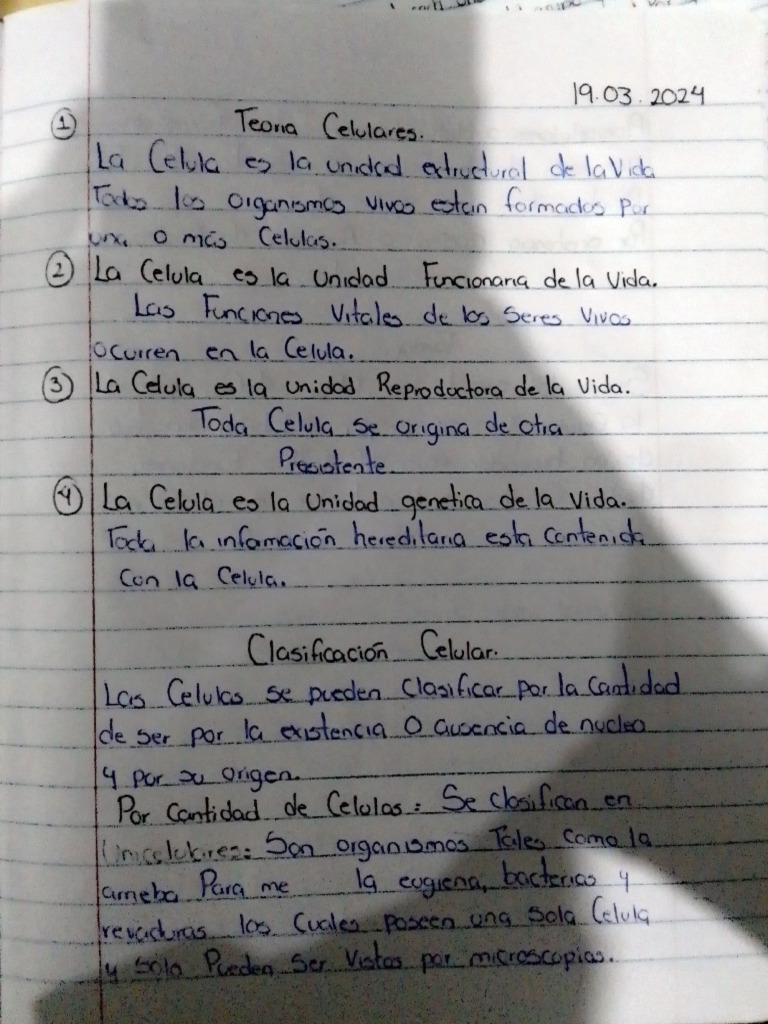 19.03.2024
① Teoria Celulares.
La Celula es la unidad extructural de la Vida
Todos los organismos vivos estan formados por
una o más Celulas.
② La Celula es la Unidad Funcionaria de la Vida.
Las Funciones Vitales de los Seres Vivos
ocurren en la Celula.
③ La Celula es la unidad Reproductora de la Vida.
Toda Celula se origina de otra
Preexistente.
④ La Celula es la Unidad genetica de la vida.
Toda la infamación hereditaria esta Contenida
con la Celula.
Clasificación Celular.
Las Celulas se pueden Clasificar por la Cantidad
de ser por la existencia o ausencia de nucleo
y por su origen.
Por Cantidad de Celulas: Se clasifican en
Unicelulares: Son organismos Tales como la
ameba Para me la eugiena, bacterias y
revaduras los Cuales poseen una sola Celula
y solo Pueden Ser Vistos por microscopias.